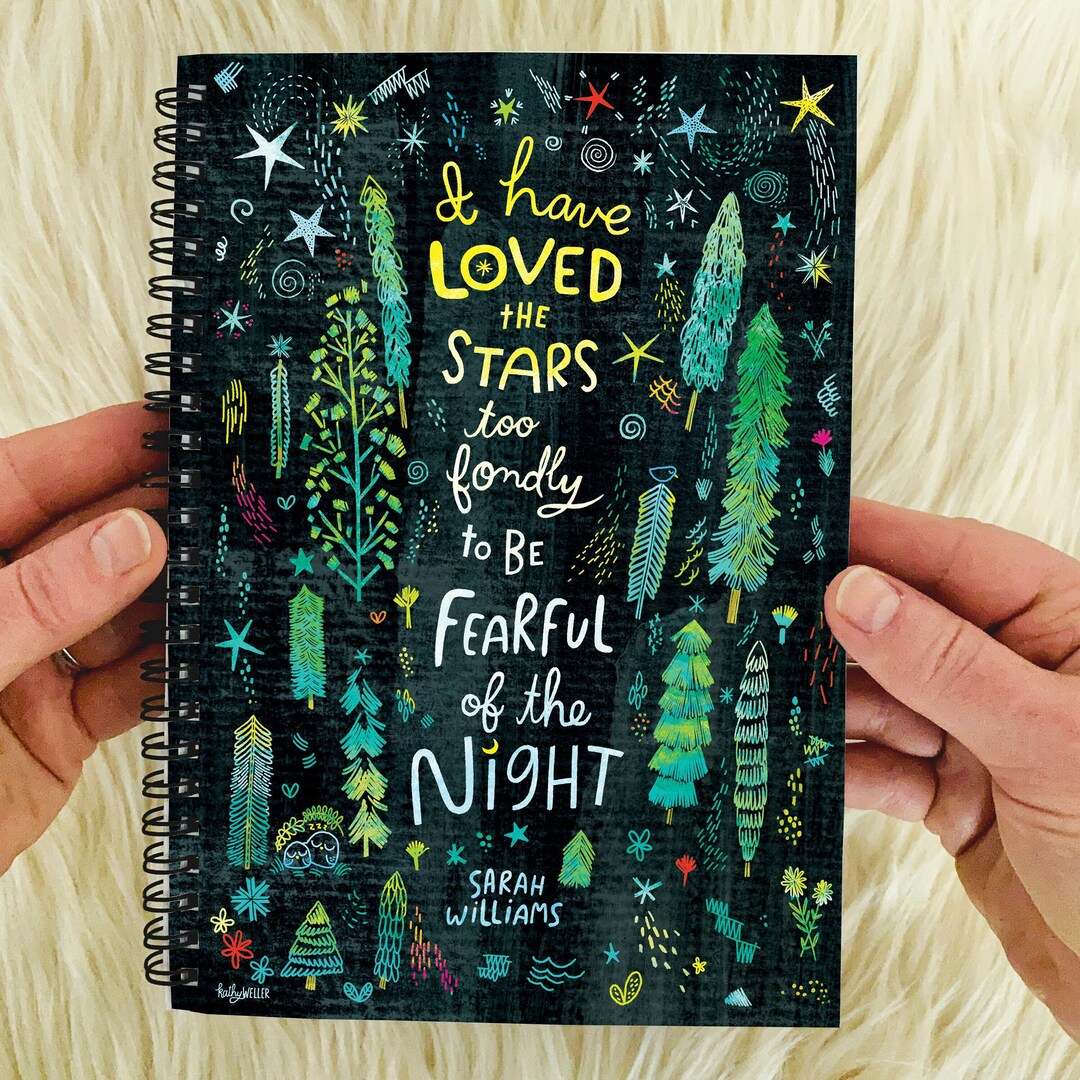 I have
LOVED
THE
STARS
too
fondly
to BE
FEARFUL
of the
NiGHT
SARAH
WiLLiAMS
zzz
kathyWELLER